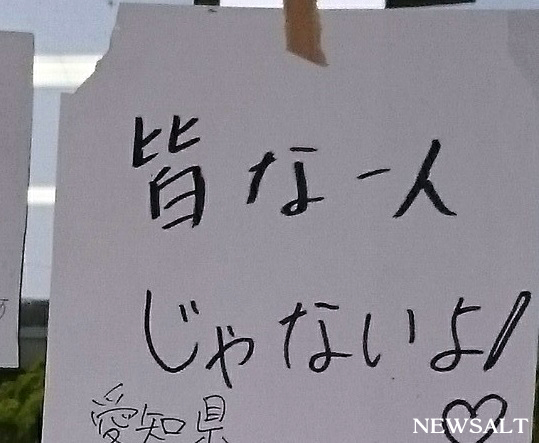 皆な一人
じゃないよ!
愛知県
NEWSALT